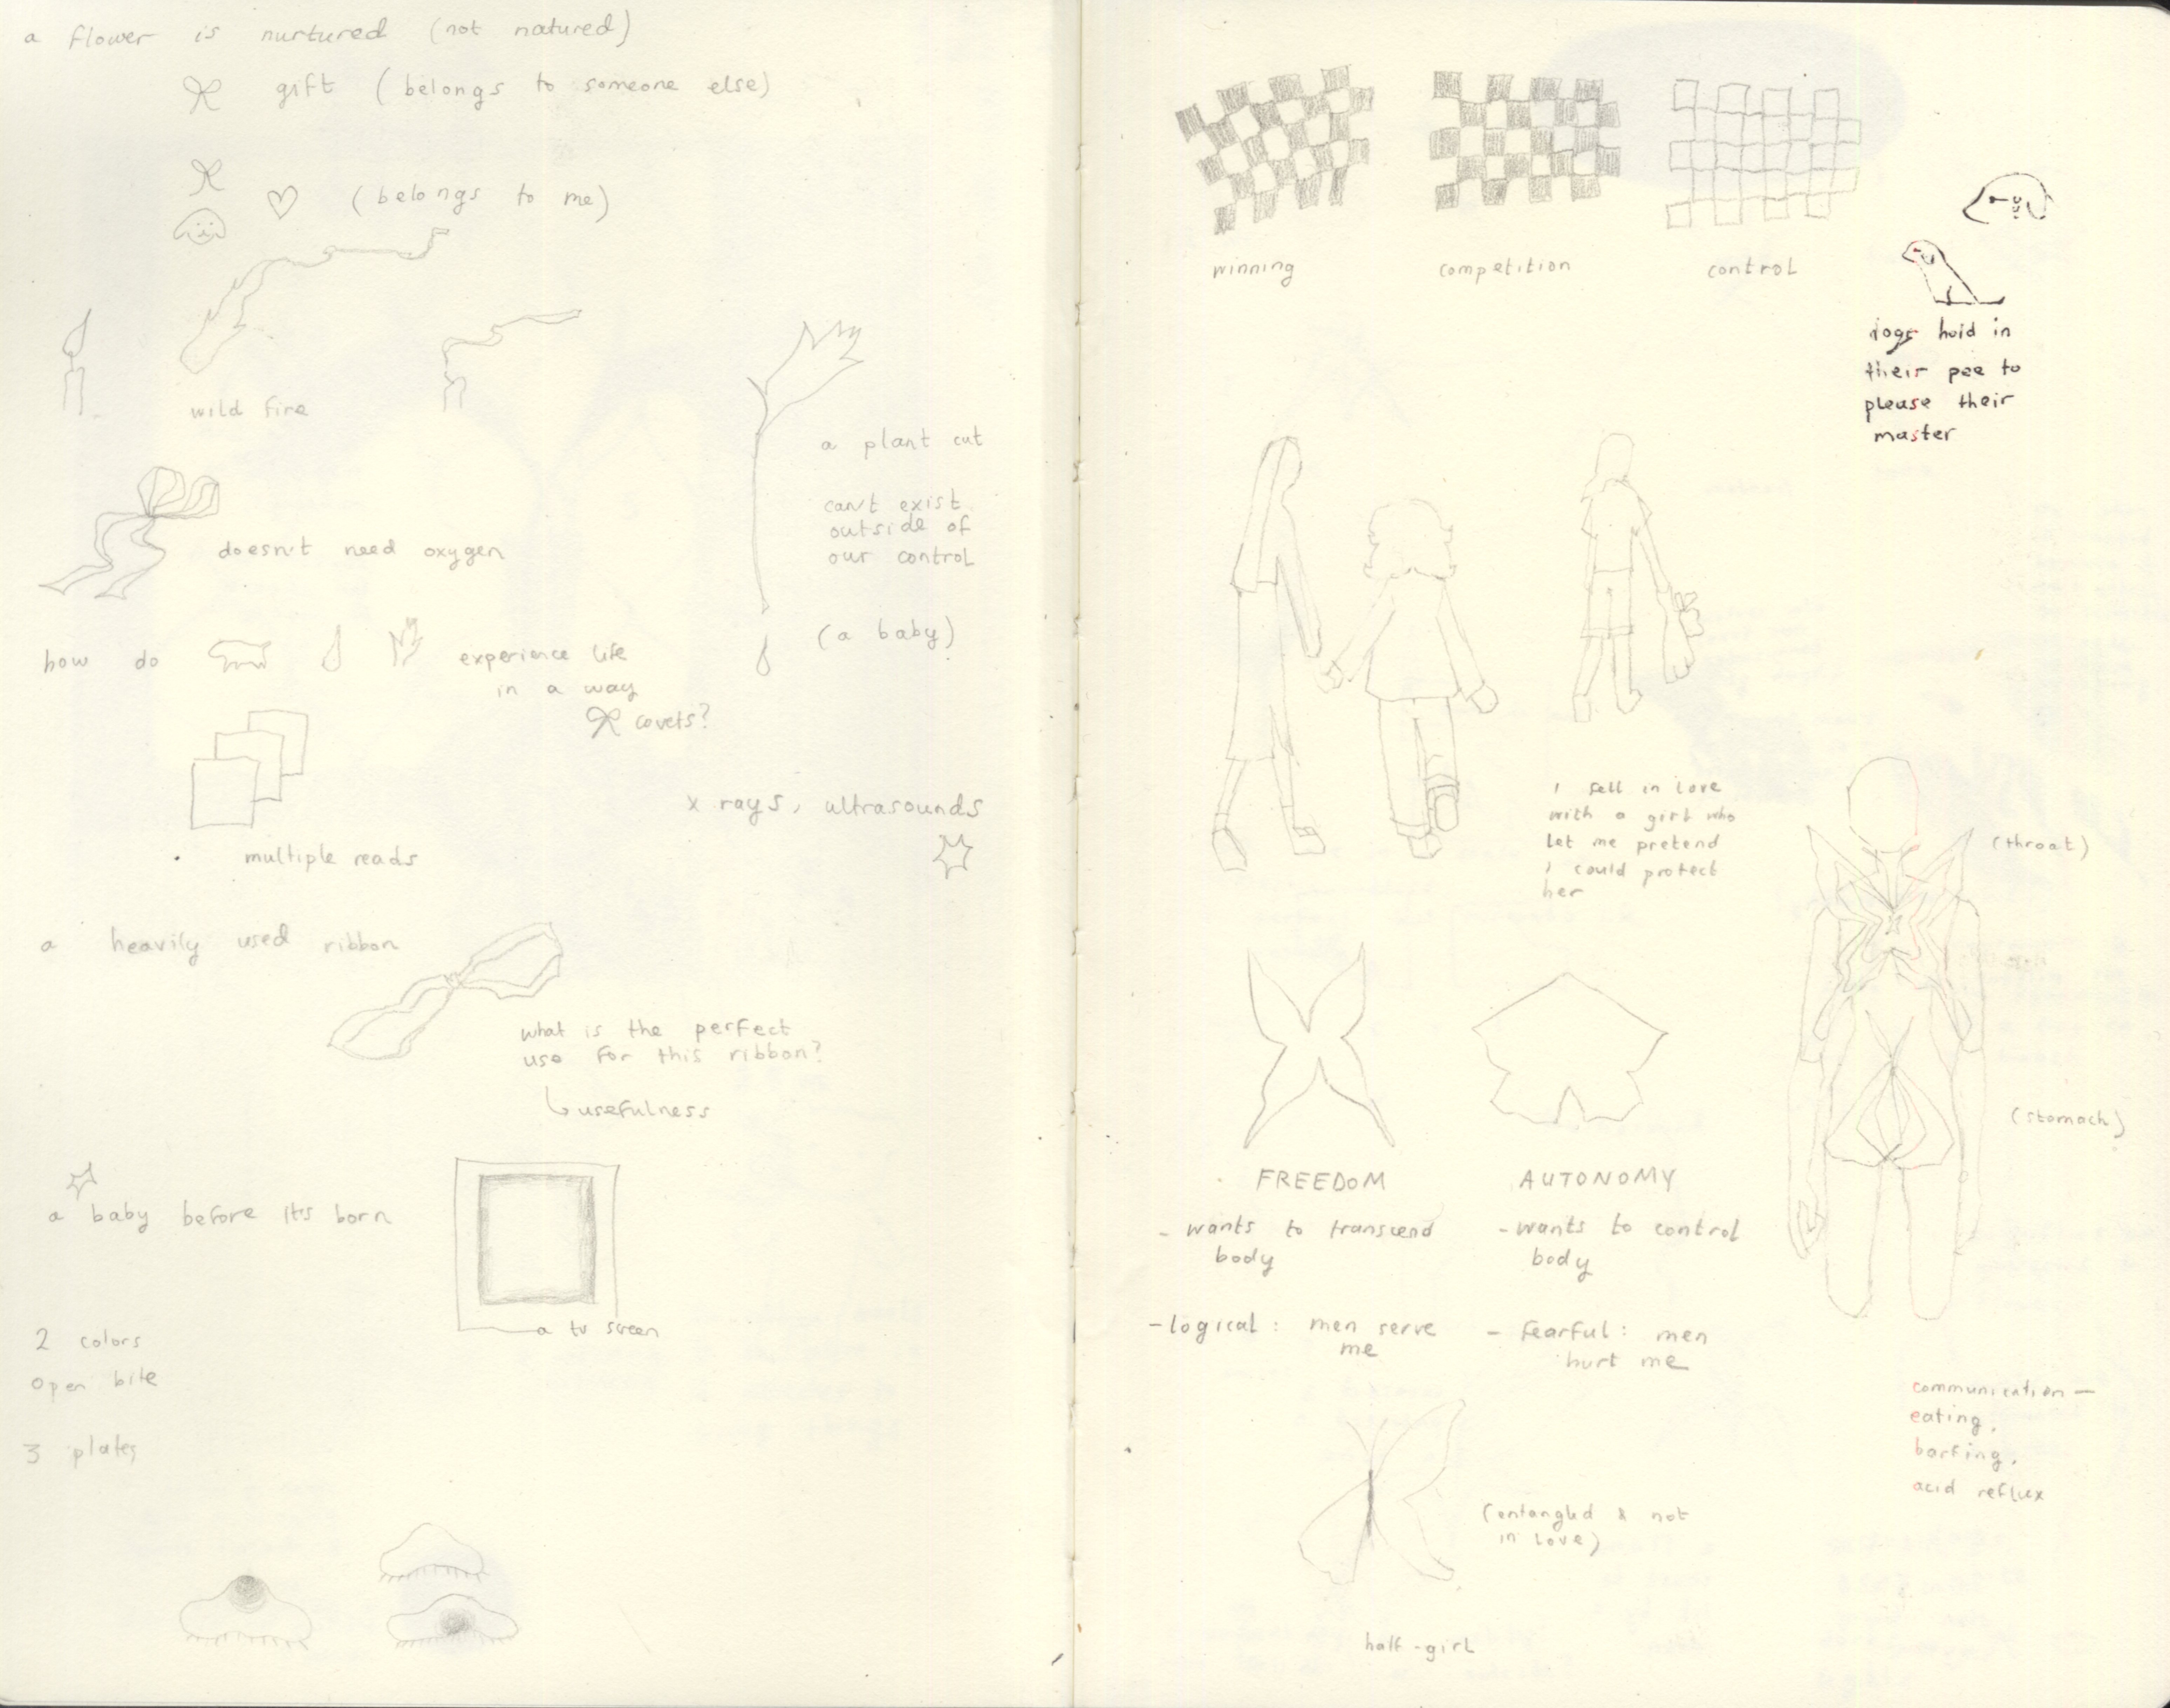 a flower is nurtured (not natured)
gift (belongs to someone else)
(belongs to me)
wild fire
a plant cut
can't exist
outside of
our control
doesn't need oxygen
(a baby)
how do experience life
in a way
covets?
x rays, ultrasounds
multiple reads
a heavily used ribbon
what is the perfect
use for this ribbon?
usefulness
a baby before its born
a tv screen
2 colors
open bite
3 plates
winning
competition
control
dogs hold in
their pee to
please their
master
i fell in love
with a girl who
let me pretend
i could protect
her
(throat)
(stomach)
FREEDOM
- wants to transcend
body
- logical: men serve
me
AUTONOMY
- wants to control
body
- fearful: men
hurt me
communication —
eating,
barfing,
acid reflux
(entangled & not
in love)
half-girl